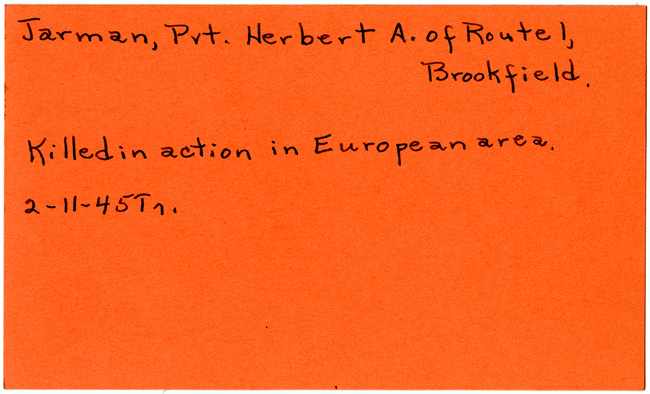 Jarman, Pvt. Herbert A. of Route 1,
Brookfield.
Killed in action in European area.
2-11-45 Tr.